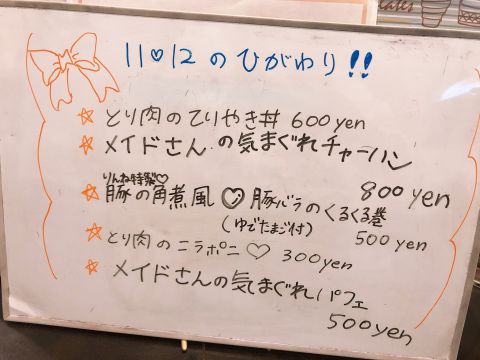 11♡12のひがわり!!
☆ とり肉のてりやき丼 600yen
☆ メイドさんの気まぐれチャーハン
800yen
りんね特製♡
☆ 豚の角煮風♡豚バラのくるくる巻
(ゆでたまご付) 500yen
☆ とり肉のニラポニ♡ 300yen
☆ メイドさんの気まぐれパフェ
500yen